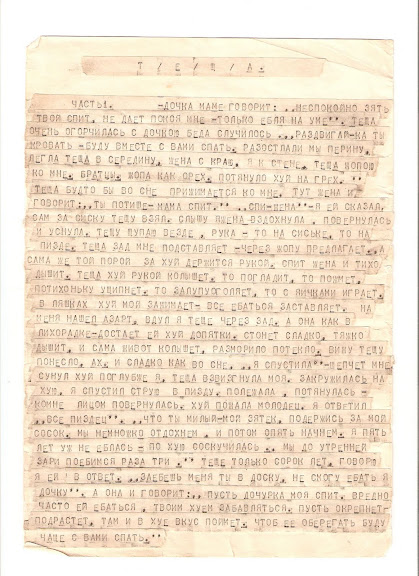 Т/Е/Щ/А.
ЧАСТЬ1. -ДОЧКА МАМЕ ГОВОРИТ: ,,НЕСПОКОЙНО ЗЯТЬ
ТВОЙ СПИТ. НЕ ДАЕТ ПОКОЯ МНЕ -ТОЛЬКО ЕБЛЯ НА УМЕ". ТЕЩА
ОЧЕНЬ ОГОРЧИЛАСЬ С ДОЧКОЮ БЕДА СЛУЧИЛОСЬ .,,РАЗДВИГАЙ-КА ТЫ
КРОВАТЬ -БУДУ ВМЕСТЕ С ВАМИ СПАТЬ. РАЗОСТЛАЛИ МЫ ПЕРИНУ,
ЛЕГЛА ТЕЩА В СЕРЕДИНУ. ЖЕНА С КРАЮ, Я К СТЕНЕ. ТЕЩА ЖОПОЮ
КО МНЕ. БРАТЦЫ, ЖОПА КАК ОРЕХ. ПОТЯНУЛО ХУЙ НА ГРЕХ. "
ТЕЩА БУДТО БЫ ВО СНЕ ПРИЖИМАЕТСЯ КО МНЕ. ТУТ ЖЕНА И
ГОВОРИТ:,,ТЫ ПОТИШЕ-МАМА СПИТ." ..СПИ-ЖЕНА"-Я ЕЙ СКАЗАЛ,
САМ ЗА СИСКУ ТЕЩУ ВЗЯЛ. СЛЫШУ ЖЕНКА ВЗДОХНУЛА. ПОВЕРНУЛАСЬ
И УСНУЛА. ТЕЩУ ЩУПАЮ ВЕЗДЕ, РУКА - ТО НА СИСЬКЕ, ТО НА
ПИЗДЕ. ТЕЩА ЗАД МНЕ ПОДСТАВЛЯЕТ -ЧЕРЕЗ ЖОПУ ПРЕДЛАГАЕТ. А
САМА ЖЕ ТОЙ ПОРОЙ ЗА ХУЙ ДЕРЖИТСЯ РУКОЙ. СПИТ ЖЕНА И ТИХО
ДЫШИТ. ТЕЩА ХУЙ РУКОЙ КОЛЫШЕТ. ТО ПОГЛАДИТ, ТО ПОЖМЕТ,
ПОТИХОНЬКУ УЩИПНЕТ. ТО ЗАЛУПУ ГОЛЯЕТ, ТО С ЯИЧКАМИ ИГРАЕТ.
В ЛЯШКАХ ХУЙ МОЙ ЗАЖИМАЕТ- ВСЕ ЕБАТЬСЯ ЗАСТАВЛЯЕТ. НА
МЕНЯ НАШЕЛ АЗАРТ, ВДУЛ Я ТЕЩЕ ЧЕРЕЗ ЗАД. А ОНА КАК В
ЛИХОРАДКЕ-ДОСТАЕТ ЕЙ ХУЙ ДОПЯТКИ. СТОНЕТ СЛАДКО, ТЯЖКО
ДЫШИТ, И САМА ЖИВОТ КОЛЫШЕТ, РАЗМОРИЛО ПОТЕКЛО. ВИЖУ ТЕЩУ
ПОНЕСЛО. АХ, И СЛАДКО КАК ВО СНЕ. ,,Я СПУСТИЛА"-ШЕПЧЕТ МНЕ.
СУНУЛ ХУЙ ПОГЛУБЖЕ Я, ТЕЩА ВЗВИЗГНУЛА МОЯ. ЗАКРУЖИЛАСЬ НА
ХУЮ, Я СПУСТИЛ СТРУЮ В ПИЗДУ. ПОЛЕЖАЛА, ПОТЯНУЛАСЬ -
КОМНЕ ЛИЦОМ ПОВЕРНУЛАСЬ. ХУЙ ПОЖАЛА МОЛОДЕЦ. Я ОТВЕТИЛ
,,ВСЕ ПИЗДЕЦ". ,,ЧТО ТЫ МИЛЫЙ-МОЙ ЗЯТЕК. ПОДЕРЖИСЬ ЗА МОЙ
СОСОК. МЫ НЕМНОЖКО ОТДОХНЕМ, И ПОТОМ ОПЯТЬ НАЧНЕМ. Я ПЯТЬ
ЛЕТ УЖ НЕ ЕБЛАСЬ - ПО ХУЮ СОСКУЧИЛАСЬ .. МЫ ДО УТРЕННЕЙ
ЗАРИ ПОЕБИМСЯ РАЗА ТРИ ." ТЕЩЕ ТОЛЬКО СОРОК ЛЕТ. ГОВОРЮ
Я ЕЙ В ОТВЕТ. ,,ЗАЕБЕШЬ МЕНЯ ТЫ В ДОСКУ, НЕ СМОГУ ЕБАТЬ Я
ДОЧКУ". А ОНА И ГОВОРИТ:,, ПУСТЬ ДОЧУРКА МОЯ СПИТ. ВРЕДНО
ЧАСТО ЕЙ ЕБАТЬСЯ, ТВОИМ ХУЕМ ЗАБАВЛЯТЬСЯ. ПУСТЬ ОКРЕПНЕТ-
ПОДРАСТЕТ, ТАМ И В ХУЕ ВКУС ПОЙМЕТ. ЧТОБ ЕЕ ОБЕРЕГАТЬ БУДУ
ЧАЩЕ С ВАМИ СПАТЬ."